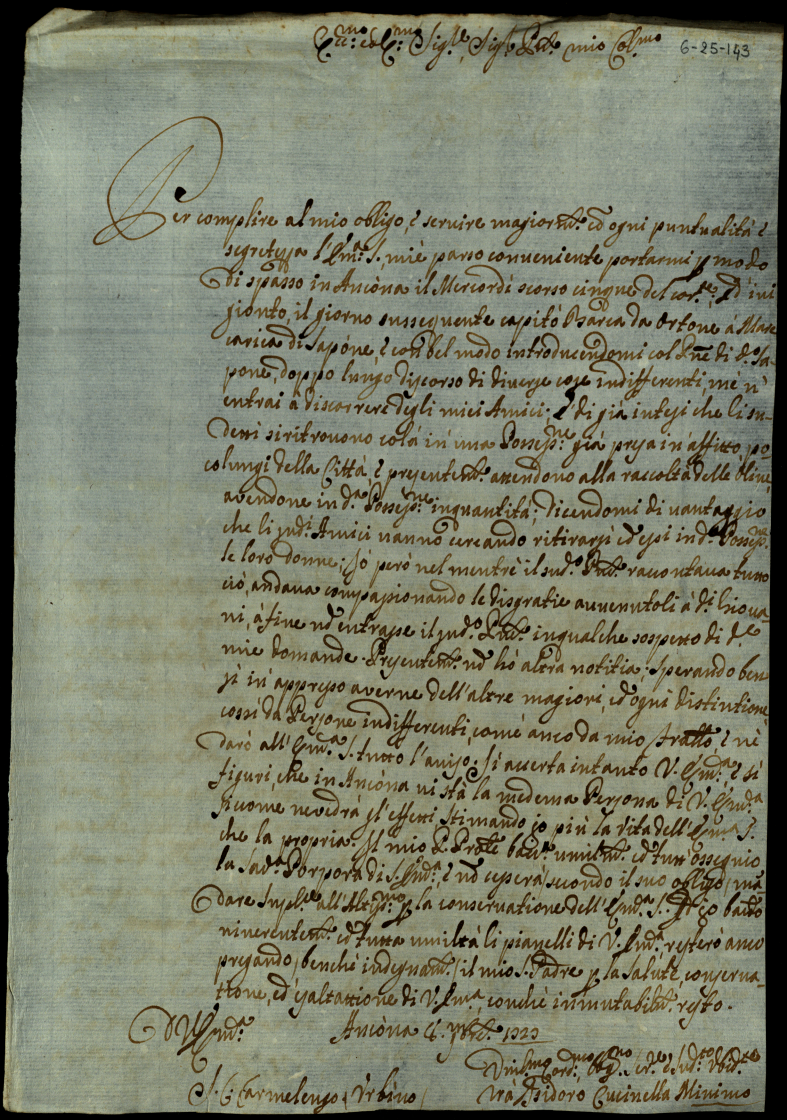 Em.mo e Rm.mo Sig.re, Sig.r P.rone mio Col.mo
6-25-143
Per complire al mio obligo, è servire magiorm.te cō ogni puntualità è
segretezza l'Em.a S. miè parso conveniente portarmi ꝑ modo
di spasso in Ancòna il Mercordì scorso cinque del cor.te; Ed' ivi
gionto, il giorno sussequente capitò Barca da Ortone à Mare
carica di Sapone, è con bel modo introducendomi col P.rne di d.o Sa-
pone, doppo lungo discorso di diverse cose indifferenti, mè n'
entrai à discorrere degli mici Amici; E di già intesi che li su-
detti si ritrovono colà in una Possess.ne già presa in affitto, po-
colungi della Città, è presentem.te attendono alla raccolta delle Olive,
avendone in d.a Possess.ne in quantità; dicendomi di vantaggio
che li sud.i Amici vanno cercando ritirarsi cō essi in d.a Possess.ne
le loro donne; Jó però nel mentrè il sud.o P.rne raccontava tutto
ciò, andava compassionando le disgratie avvenutoli à d.i Giova-
ni, à fine nō entrasse il sud.o P.rne in qualche sospetto di d.e
mie domande. Presentem.te nō hò altra notitia; sperando ben
sì in appresso averne dell'altre magiori, cō ogni distintione,
cossì da Persone indifferenti, comè anco da mio fratello, è nè
darò all'Em.a S. tutto l'aviso; Si accerta intanto V. Em.a, è si
figuri, che in Ancòna vi stà la medema Persona di V. Em.a
sicome nevedrà gl'effetti, stimando jo più la Vita dell'Em.a S.
che la propria. Il mio P. Prōle bacia umilm.te cō tutt'ossequio
la Sac.a Porpora di S. Em.a, è nō cesserà, secondo il suo obligo, mā
dare supl.e all'Altiss.mo ꝑ la conservatione dell'Em.a S. Et jo bacio
riverentem.te cō tutta umiltà li pianelli di V. Em.a, resterò anco
pregando, benchè indegnam.te, il mio S. Padre ꝑ la salute, conserva-
tione, ed'esaltatione di V. Em.a, conchè inmutabilm.te resto.
D V. Em.a Ancòna 8. 9bre. 1727
Umil.mo Dev.mo Obg.mo Ser.re e Sud.to Ubid.te
S. C. Carmelengo, Urbino, frà Isidoro Cucinella Minimo